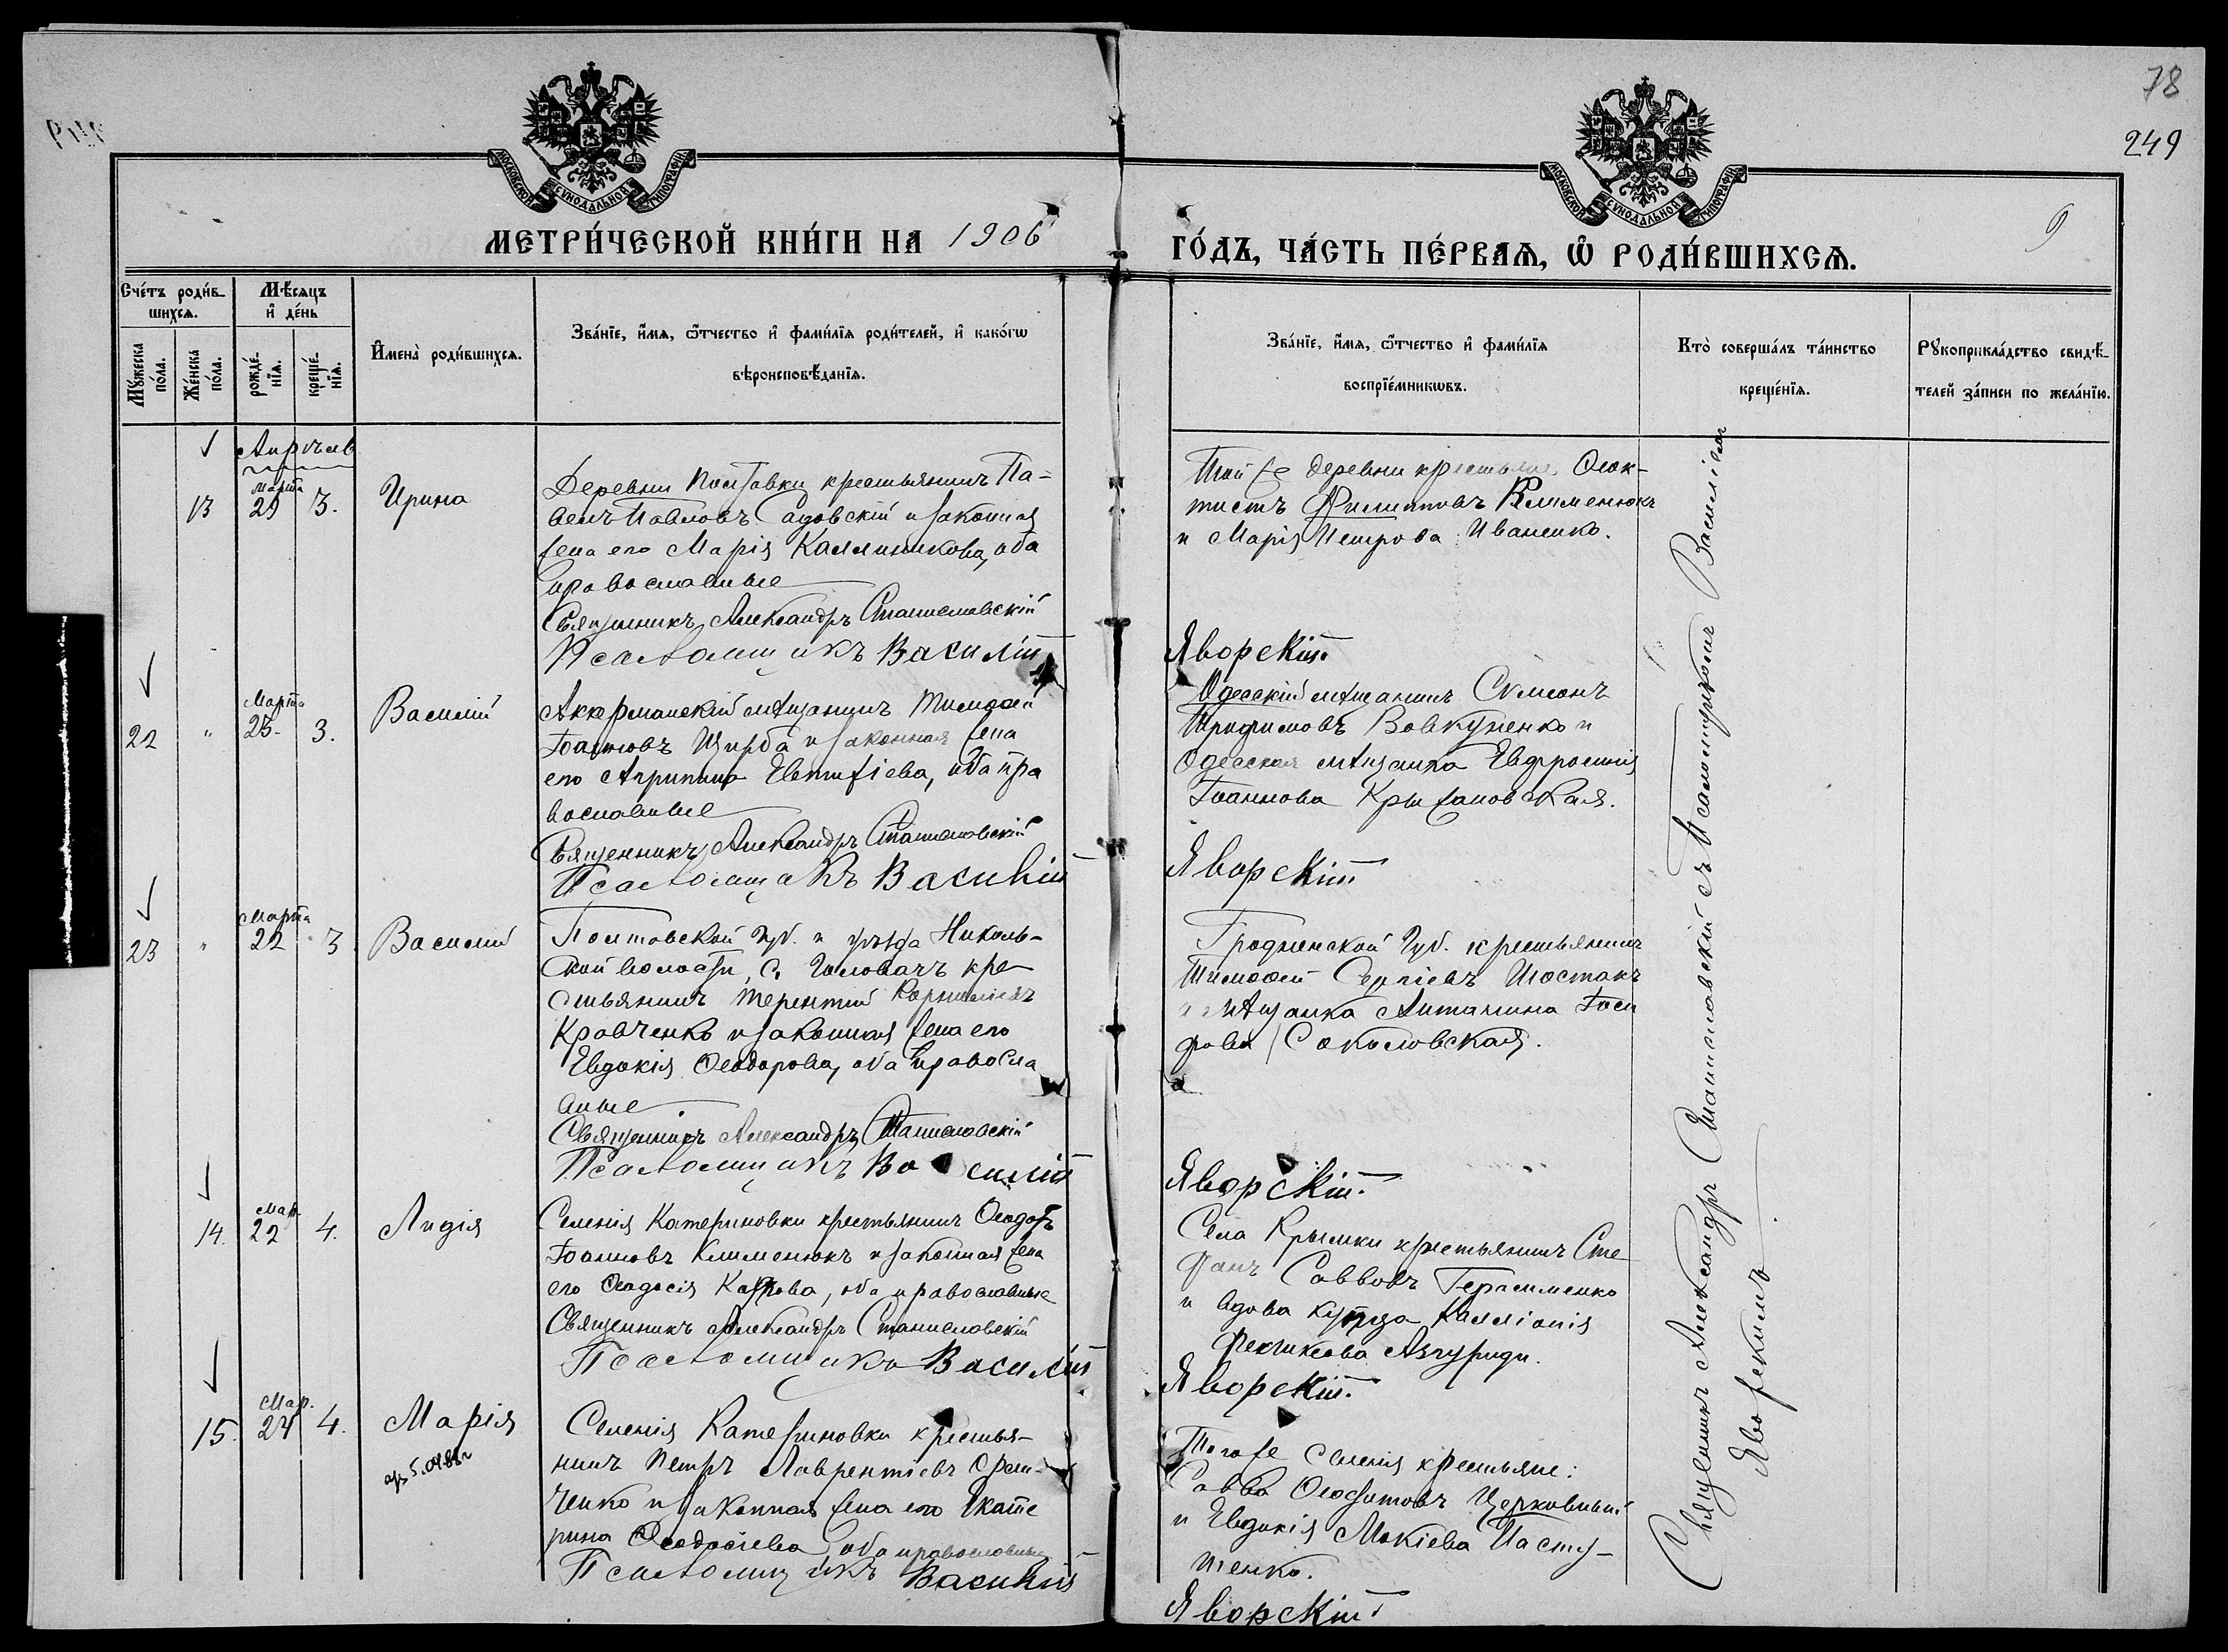 78
249
9
МОСКОВСКОЙ СѴНОДАЛЬНОЙ ТИПОГРАФІИ
МОСКОВСКОЙ СѴНОДАЛЬНОЙ ТИПОГРАФІИ
МЕТРИ́ЧЕСКОЙ КНИ́ГИ НА 1906
ГО́ДЪ, ЧА́СТЬ ПЕ́РВАѦ, Ѽ РОДИ́ВШИХСѦ.
Сче́тъ роди́вшихсѧ.
Мꙋ́жеска по́ла.
Же́нска по́ла.
Мѣ́сѧцъ и҆ де́нь
рожде́нїѧ.
креще́нїѧ.
И҆мена̀ роди́вшихсѧ.
Зва́нїе, и҆́мѧ, ѻ҆́тчество и҆ фами́лїѧ роди́телей, и҆ како́гѡ
вѣроисповѣ́данїѧ.
Зва́нїе, и҆́мѧ, ѻ҆́тчество и҆ фами́лїѧ
воспрїе́мникѡвъ.
Кто̀ соверша́лъ та́инство
креще́нїѧ.
Рꙋкоприкла́дство свидѣ́-
телей за́писи по жела́нїю.
Апрѣль
13
Марта
29
3.
Ирина
Деревни Полтавки крестьянинъ Па-
велъ Павловъ Садовскій и законная
жена его Марія Каллиникова, оба
православные
Священникъ Александръ Станиславскій
Псаломщикъ Василій
Той же деревни крестьяне Ѳеок-
тистъ Филипповъ Клименюкъ
и Марія Петрова Иваненко.
Яворскій.
22
"
Марта
25.
3.
Василій
Аккерманскій мѣщанинъ Тимоѳей
Іоанновъ Щирба и законная жена
его Агрипина Евтихіева, оба пра
вославные
Священникъ Александръ Станиславскій
Псаломщикъ Василій
Одесскій мѣщанинъ Сѵмеонъ
Трифимовъ Вовкуненко и
Одесская мѣщанка Евфросинія
Іоаннова Крыжановская.
Яворскій
23
"
Марта
22
3
Василій
Полтавской губ. и уѣзда Николь-
ской волости, с. Головачъ кре
стьянинъ Терентій Корниліевъ
Кравченко и законная жена его
Евдокія Ѳеодорова, оба правосла
вные
Священникъ Александръ Станиславскій
Псаломщикъ Василій
Гродненской губ. крестьянинъ
Тимоѳей Сергіевъ Шостакъ
и мѣщанка Антонина Іоси
фова Соколовская.
Яворскій.
14.
Мар.
22
4.
Лидія
Селенія Катериновки крестьянинъ Ѳеодотъ
Іоанновъ Клименюкъ и законная жена
его Ѳеодосія Карпова, оба православные
Священникъ Александръ Станиславскій
Псаломщикъ Василій
Села Крымки крестьянинъ Сте
фанъ Саввовъ Герасименко
и вдова купца Калліопія
Азгуриди.
Яворскій.
15.
Мар.
24
4.
Марія
Селенія Катериновки крестья-
нинъ Петръ Лаврентіевъ
ченко и законная жена его Екате
рина Ѳеодосіева, оба православные
Псаломщикъ Василій
Того же селенія крестьяне:
Савва Церковный
и Евдокія Мокіева Пасту-
шенко.
Яворскій
Священникъ Александръ Станиславскій съ Псаломщикомъ Василіемъ
Яворскимъ.